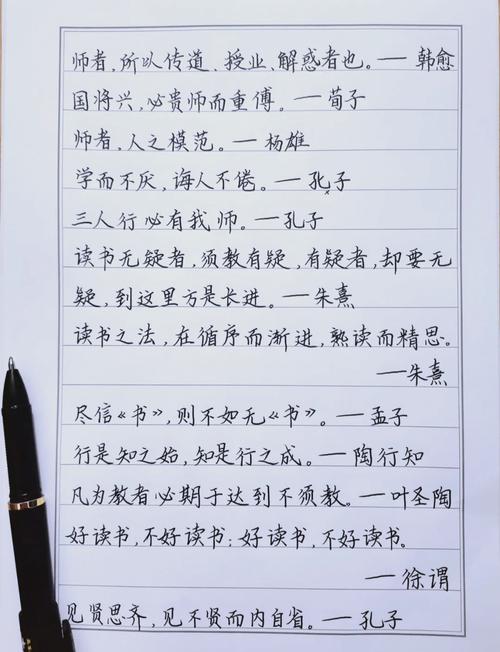 师者，所以传道、授业、解惑者也。— 韩愈
国将兴，必贵师而重傅。— 荀子
师者，人之模范。— 杨雄
学而不厌，诲人不倦。— 孔子
三人行必有我师。— 孔子
读书无疑者，须教有疑，有疑者，却要无
疑，到这里方是长进。— 朱熹
读书之法，在循序而渐进，熟读而精思。
— 朱熹
尽信《书》，则不如无《书》。— 孟子
行是知之始，知是行之成。— 陶行知
凡为教者必期于达到不须教。— 叶圣陶
好读书，不好读书；好读书，不好读书。
— 徐谓
见贤思齐，见不贤而内自省。— 孔子